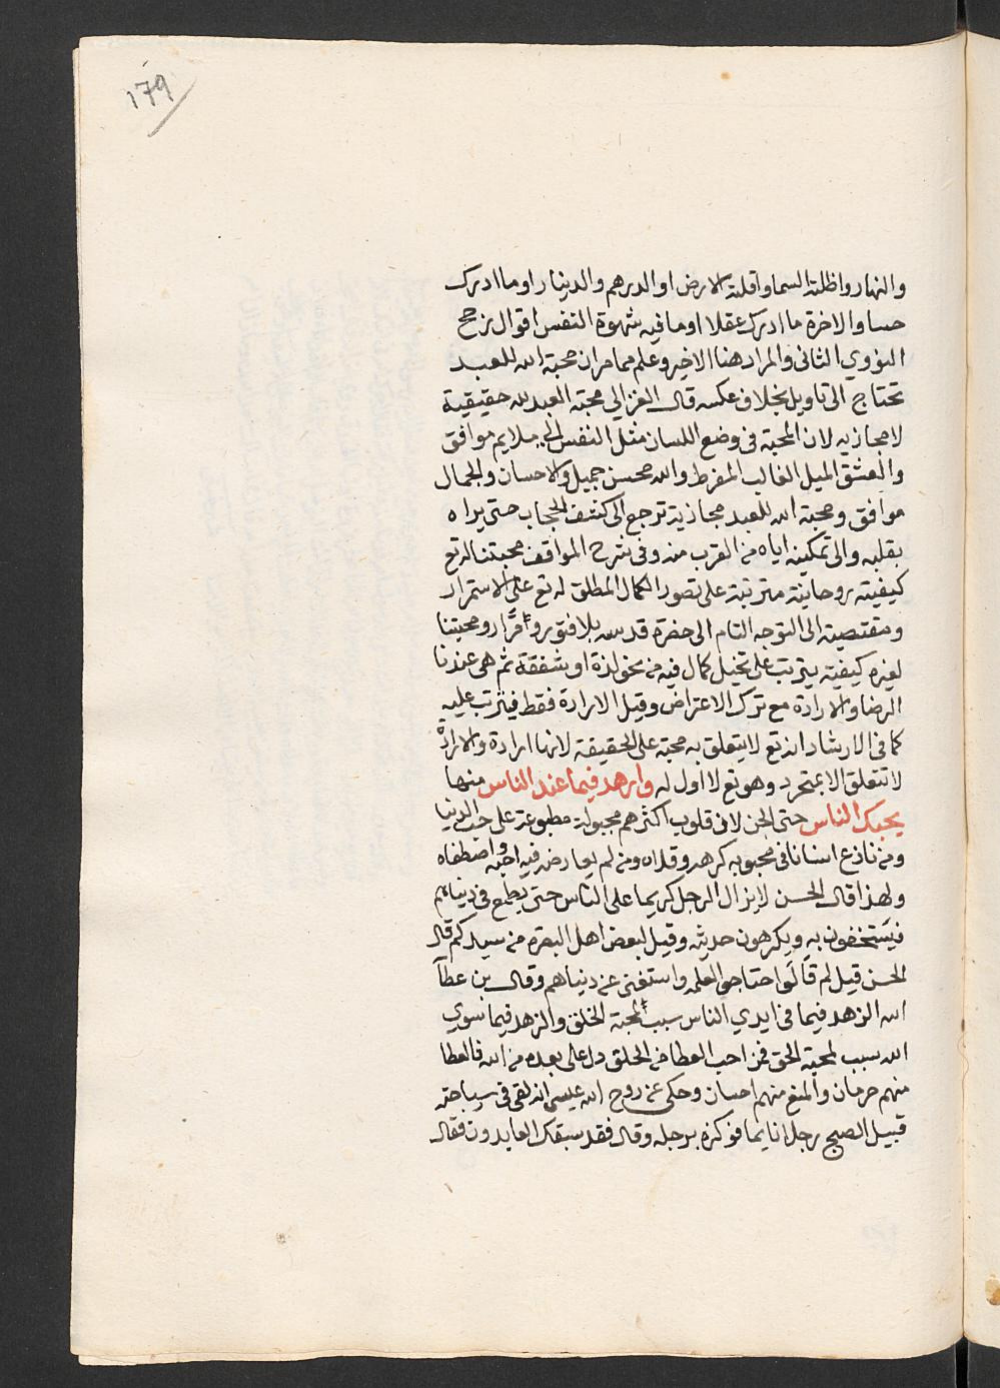 179
والنهار واظلته السما واقلته الارض او الدرهم والدينار او ما ادرك
حسا والاخرة ما ادرك عقلا او ما فيه شهوة النفس اقوال رجح
النووي الثاني والمراد هنا الاخير وعلم مما مر ان محبة الله للعبد
تحتاج الى تاويل بخلاف عكسه قال الغزالي محبة العبد لله حقيقية
لا مجازيه لان المحبة في وضع اللسان مثل النفس الى ملايم موافق
والعشق الميل الغالب المفرط والله محسن جميل والاحسان والجمال
موافق ومحبة الله للعبد مجازية ترجع الى كشف الحجاب حتى يراه
بقلبه والى تمكينه اياه من القرب منه وفي شرح المواقف محبتنا له تع
كيفيته روحانية مترتبة على تصور الكمال المطلق له تع على الاستمرار
ومقتضيته الى التوجه التام الى حضرة قدسه بلا فتور وفرار ومحبتنا
لغيره كيفية يترتب على تخيل كمال فيه من نحو لذة او شفقة ثم هي عندنا
الرضا والارادة مع ترك الاعتراض وقيل الارادة فقط فيترتب عليه
كما في الارشاد انه تع لا يتعلق به محبة على الحقيقة لانها ارادة والارادة
لا تتعلق الا بمتجرد وهو تع لا اول له وازهد فيما عند الناس منها
يحبك الناس حتى الجن لان قلوب اكثرهم مجبولة مطبوعة على حب الدنيا
ومن نازع انسانا في محبوبه كرهه وقلاه ومن لم يعارضه فيه احبه واصطفاه
ولهذا قال الحسن لا يزال الرجل كريما على الناس حتى يطمع في دنياهم
فيستخفون به ويكرهون حديثه وقيل لبعض اهل البصرة من سيدكم قال
الحسن قيل لم قالوا احتاجوا لعلمه واستغنى عن دنياهم وقال بن عطآ
الله الزهد فيما في ايدي الناس سبب لمحبة الخلق والزهد فيما سوى
الله سبب لمحبة الحق فمن احب العطا من الخلق دل على بعده من الله فالعطا
منهم حرمان والمنع منهم احسان وحكى عن روح الله عيسى انه لقى في سياحته
قبيل الصبح رجلا نايما فوكزه برجله وقال فقد سبقك العابدون فقال